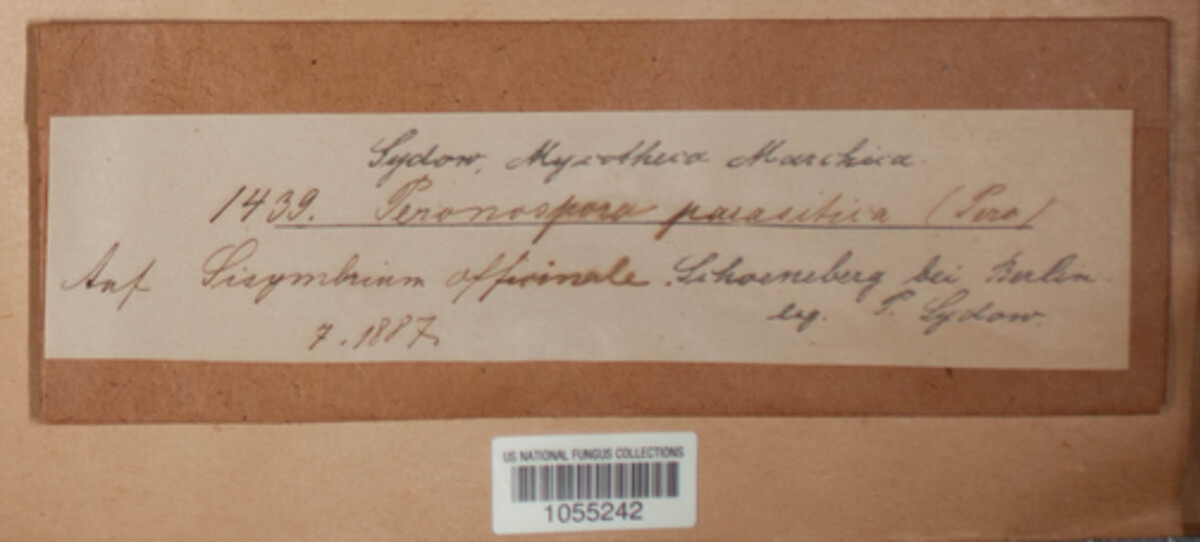 Sydow, Mycotheca Marchica
1439. Peronospora parasitica (Pers)
Auf Sisymbrium officinale. Schoeneberg bei Berlin.
7. 1887. leg. P. Sydow.
US NATIONAL FUNGUS COLLECTIONS
1055242